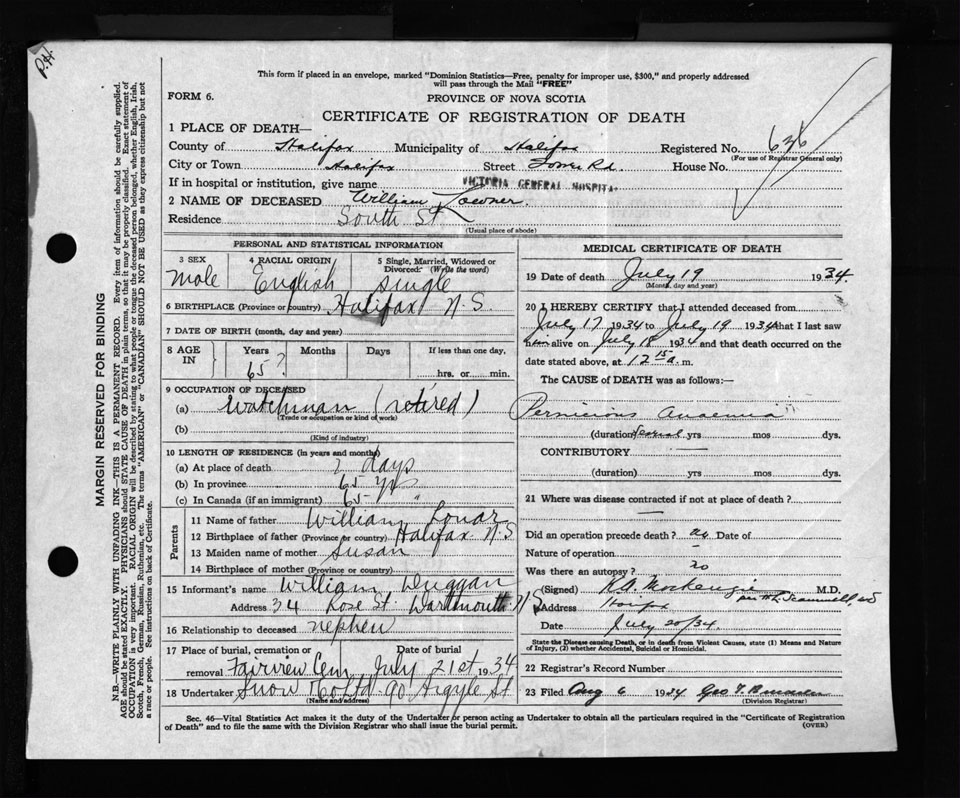 P.H.
This form if placed in an envelope, marked "Dominion Statistics—Free, penalty for improper use, $300," and properly addressed
will pass through the Mail "FREE"
FORM 6.
PROVINCE OF NOVA SCOTIA
CERTIFICATE OF REGISTRATION OF DEATH
1 PLACE OF DEATH—
County of Halifax Municipality of Halifax Registered No. 636
(For use of Registrar General only)
City or Town Halifax Street Tower Rd. House No.
If in hospital or institution, give name VICTORIA GENERAL HOSPITAL
2 NAME OF DECEASED William
Residence South St
(Usual place of abode)
PERSONAL AND STATISTICAL INFORMATION
3 SEX
male
4 RACIAL ORIGIN
English
5 Single, Married, Widowed or
Divorced: (Write the word)
single
6 BIRTHPLACE (Province or country) Halifax N.S.
7 DATE OF BIRTH (month, day and year)
8 AGE IN
Years Months Days If less than one day,
65? hrs. or min.
9 OCCUPATION OF DECEASED
(a) Watchman (retired)
(Trade or occupation or kind of work)
(b)
(Kind of industry)
10 LENGTH OF RESIDENCE (in years and months)
(a) At place of death 2 days
(b) In province 65 yrs
(c) In Canada (if an immigrant) 65 "
Parents
11 Name of father William
12 Birthplace of father (Province or country) Halifax N.S
13 Maiden name of mother Susan
14 Birthplace of mother (Province or country)
15 Informant's name William Duggan
Address 34 Rose St. Dartmouth N.S
16 Relationship to deceased nephew
17 Place of burial, cremation or Date of burial
removal Fairview Cem July 21st 1934
18 Undertaker Snow & Co Ltd 90 Argyle St
(Name and address)
MEDICAL CERTIFICATE OF DEATH
19 Date of death July 19 1934.
(Month, day and year)
20 I HEREBY CERTIFY that I attended deceased from
July 17 1934 to July 19 1934 that I last saw
him alive on July 18 1934 and that death occurred on the
date stated above, at 12 15 a. m.
The CAUSE OF DEATH was as follows:—
Pernicious Anaemia
(duration) several yrs mos dys.
CONTRIBUTORY
(duration) yrs mos dys.
21 Where was disease contracted if not at place of death?
Did an operation precede death? no Date of
Nature of operation
Was there an autopsy? no
(Signed) M.D.
Address Halifax
Date July 20/34.
State the Disease causing Death, or in death from Violent Causes, state (1) Means and Nature
of Injury, (2) whether Accidental, Suicidal or Homicidal.
22 Registrar's Record Number
23 Filed Aug 6 1934
(Division Registrar)
Sec. 46—Vital Statistics Act makes it the duty of the Undertaker or person acting as Undertaker to obtain all the particulars required in the "Certificate of Registration
of Death" and to file the same with the Division Registrar who shall issue the burial permit.
(OVER)
MARGIN RESERVED FOR BINDING
N.B.—WRITE PLAINLY WITH UNFADING INK—THIS IS A PERMANENT RECORD. Every item of information should be carefully supplied.
AGE should be stated EXACTLY. PHYSICIANS should STATE CAUSE OF DEATH in plain terms, so that it may be properly classified. Exact statement of
OCCUPATION is very important. RACIAL ORIGIN will be described by stating to what people or tongue the deceased person belonged, whether English, Irish,
Scotch, French, German, Russian, Ruthenian, etc. The terms "AMERICAN" or "CANADIAN" SHOULD NOT BE USED as they express citizenship but not
a race or people. See instructions on back of Certificate.